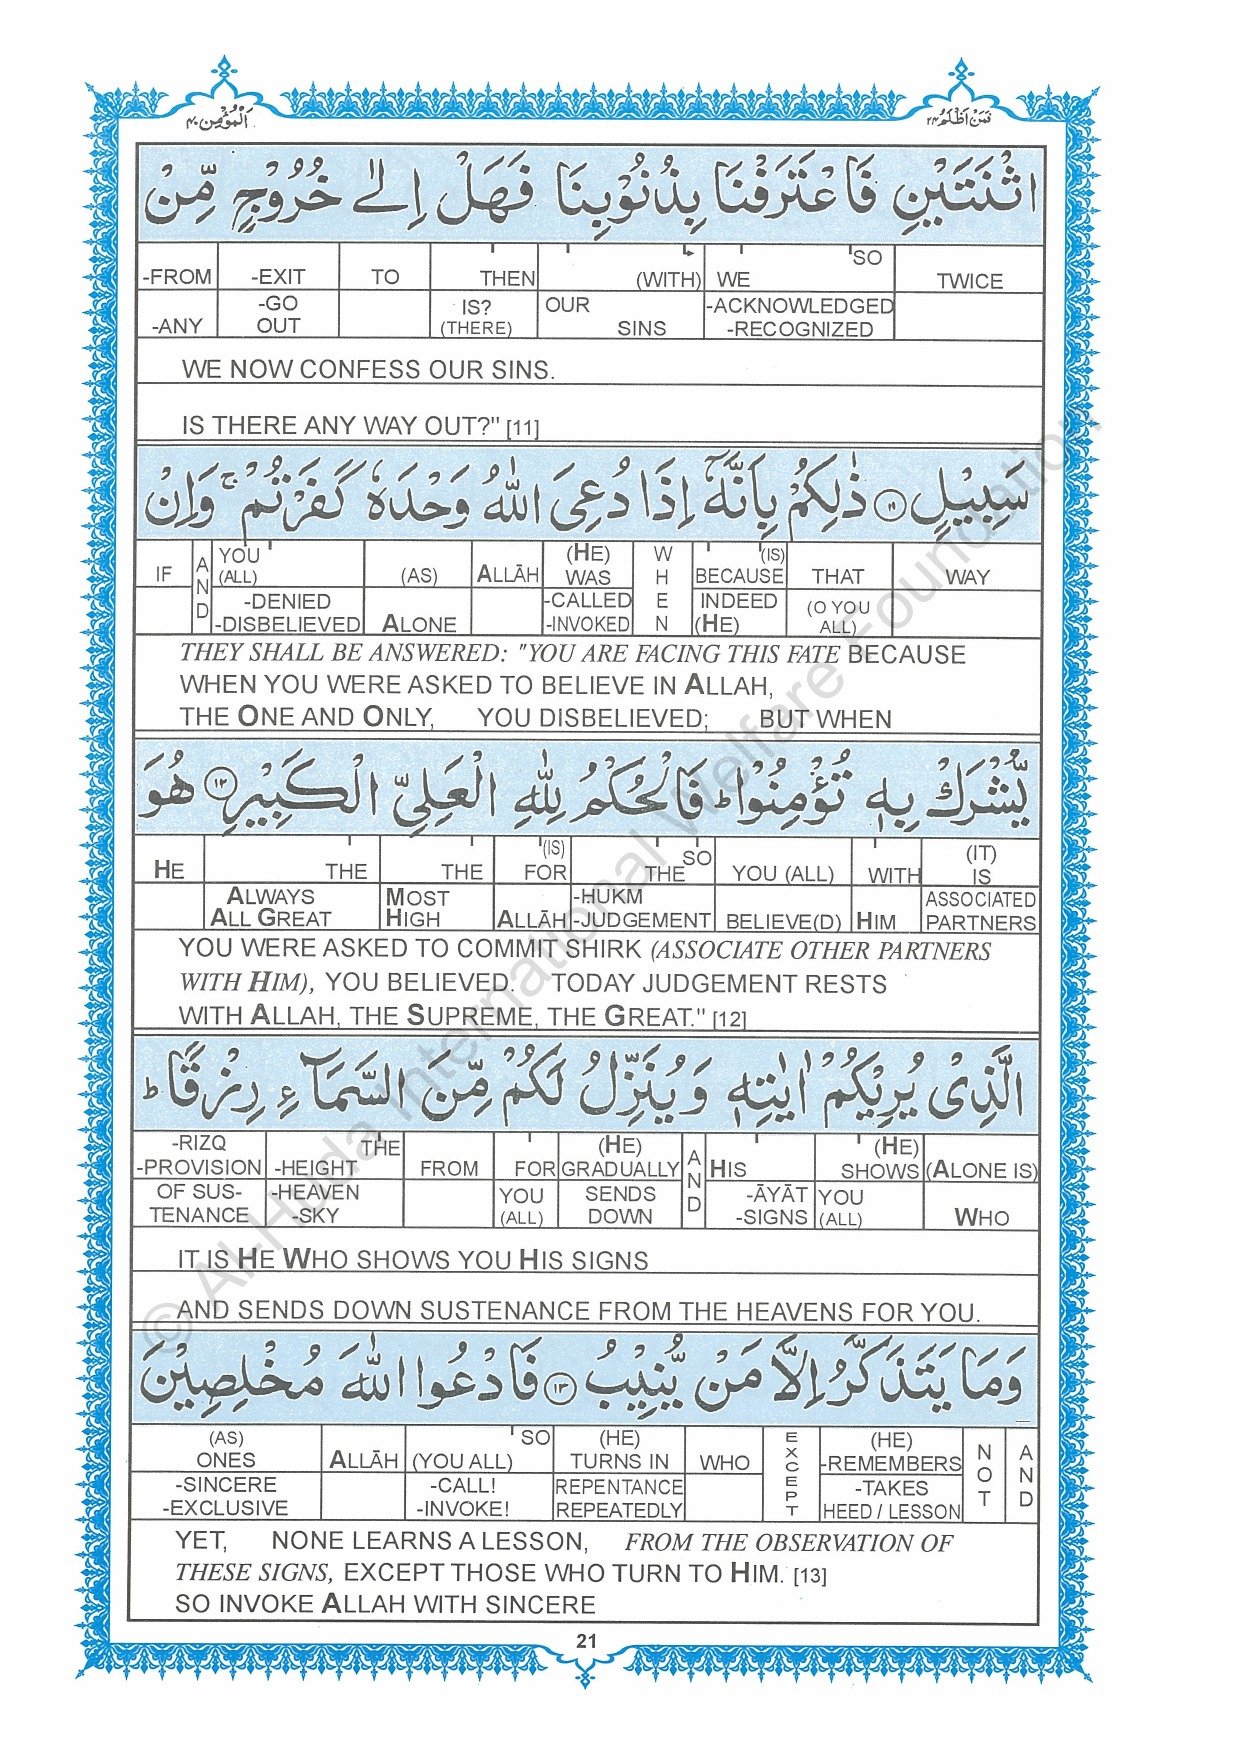 اَلْمُؤْمِن ٤٠
فَمَنْ اَظْلَمُ ٢٤
اثْنَتَيْنِ فَاعْتَرَفْنَا بِذُنُوْبِنَا فَهَلْ اِلٰى خُرُوْجٍ مِّنْ
-FROM -EXIT TO THEN (WITH) WE SO TWICE
-ANY -GO OUT IS? (THERE) OUR SINS -ACKNOWLEDGED -RECOGNIZED
WE NOW CONFESS OUR SINS.
IS THERE ANY WAY OUT?" [11]
سَبِيْلٍ ١١ ذٰلِكُمْ بِاَنَّهٗٓ اِذَا دُعِىَ اللّٰهُ وَحْدَهٗ كَفَرْتُمْ ۚ وَاِنْ
IF AND YOU (ALL) (AS) ALLĀH (HE) WAS WHEN (IS) BECAUSE THAT WAY
-DENIED -DISBELIEVED ALONE -CALLED -INVOKED INDEED (HE) (O YOU ALL)
THEY SHALL BE ANSWERED: "YOU ARE FACING THIS FATE BECAUSE
WHEN YOU WERE ASKED TO BELIEVE IN ALLAH,
THE ONE AND ONLY, YOU DISBELIEVED; BUT WHEN
يُّشْرَكْ بِهٖ تُؤْمِنُوْا ؕ فَالْحُكْمُ لِلّٰهِ الْعَلِىِّ الْكَبِيْرِ ١٢ هُوَ
HE THE THE (IS) FOR THE SO YOU (ALL) WITH (IT) IS
ALWAYS ALL GREAT MOST HIGH ALLĀH -HUKM -JUDGEMENT BELIEVE(D) HIM ASSOCIATED PARTNERS
YOU WERE ASKED TO COMMIT SHIRK (ASSOCIATE OTHER PARTNERS
WITH HIM), YOU BELIEVED. TODAY JUDGEMENT RESTS
WITH ALLAH, THE SUPREME, THE GREAT." [12]
الَّذِىْ يُرِيْكُمْ اٰيٰتِهٖ وَيُنَزِّلُ لَكُمْ مِّنَ السَّمَآءِ رِزْقًا ؕ
-RIZQ -PROVISION THE -HEIGHT FROM FOR (HE) GRADUALLY AND HIS (HE) SHOWS (ALONE IS)
OF SUS- TENANCE -HEAVEN -SKY YOU (ALL) SENDS DOWN -ĀYĀT -SIGNS YOU (ALL) WHO
IT IS HE WHO SHOWS YOU HIS SIGNS
AND SENDS DOWN SUSTENANCE FROM THE HEAVENS FOR YOU.
وَمَا يَتَذَكَّرُ اِلَّا مَنْ يُّنِيْبُ ١٣ فَادْعُوا اللّٰهَ مُخْلِصِيْنَ
(AS) ONES ALLĀH SO (YOU ALL) (HE) TURNS IN WHO EXCEPT (HE) -REMEMBERS NOT AND
-SINCERE -EXCLUSIVE -CALL! -INVOKE! REPENTANCE REPEATEDLY -TAKES HEED / LESSON
YET, NONE LEARNS A LESSON, FROM THE OBSERVATION OF
THESE SIGNS, EXCEPT THOSE WHO TURN TO HIM. [13]
SO INVOKE ALLAH WITH SINCERE
21
© Al-Huda International Welfare Foundation